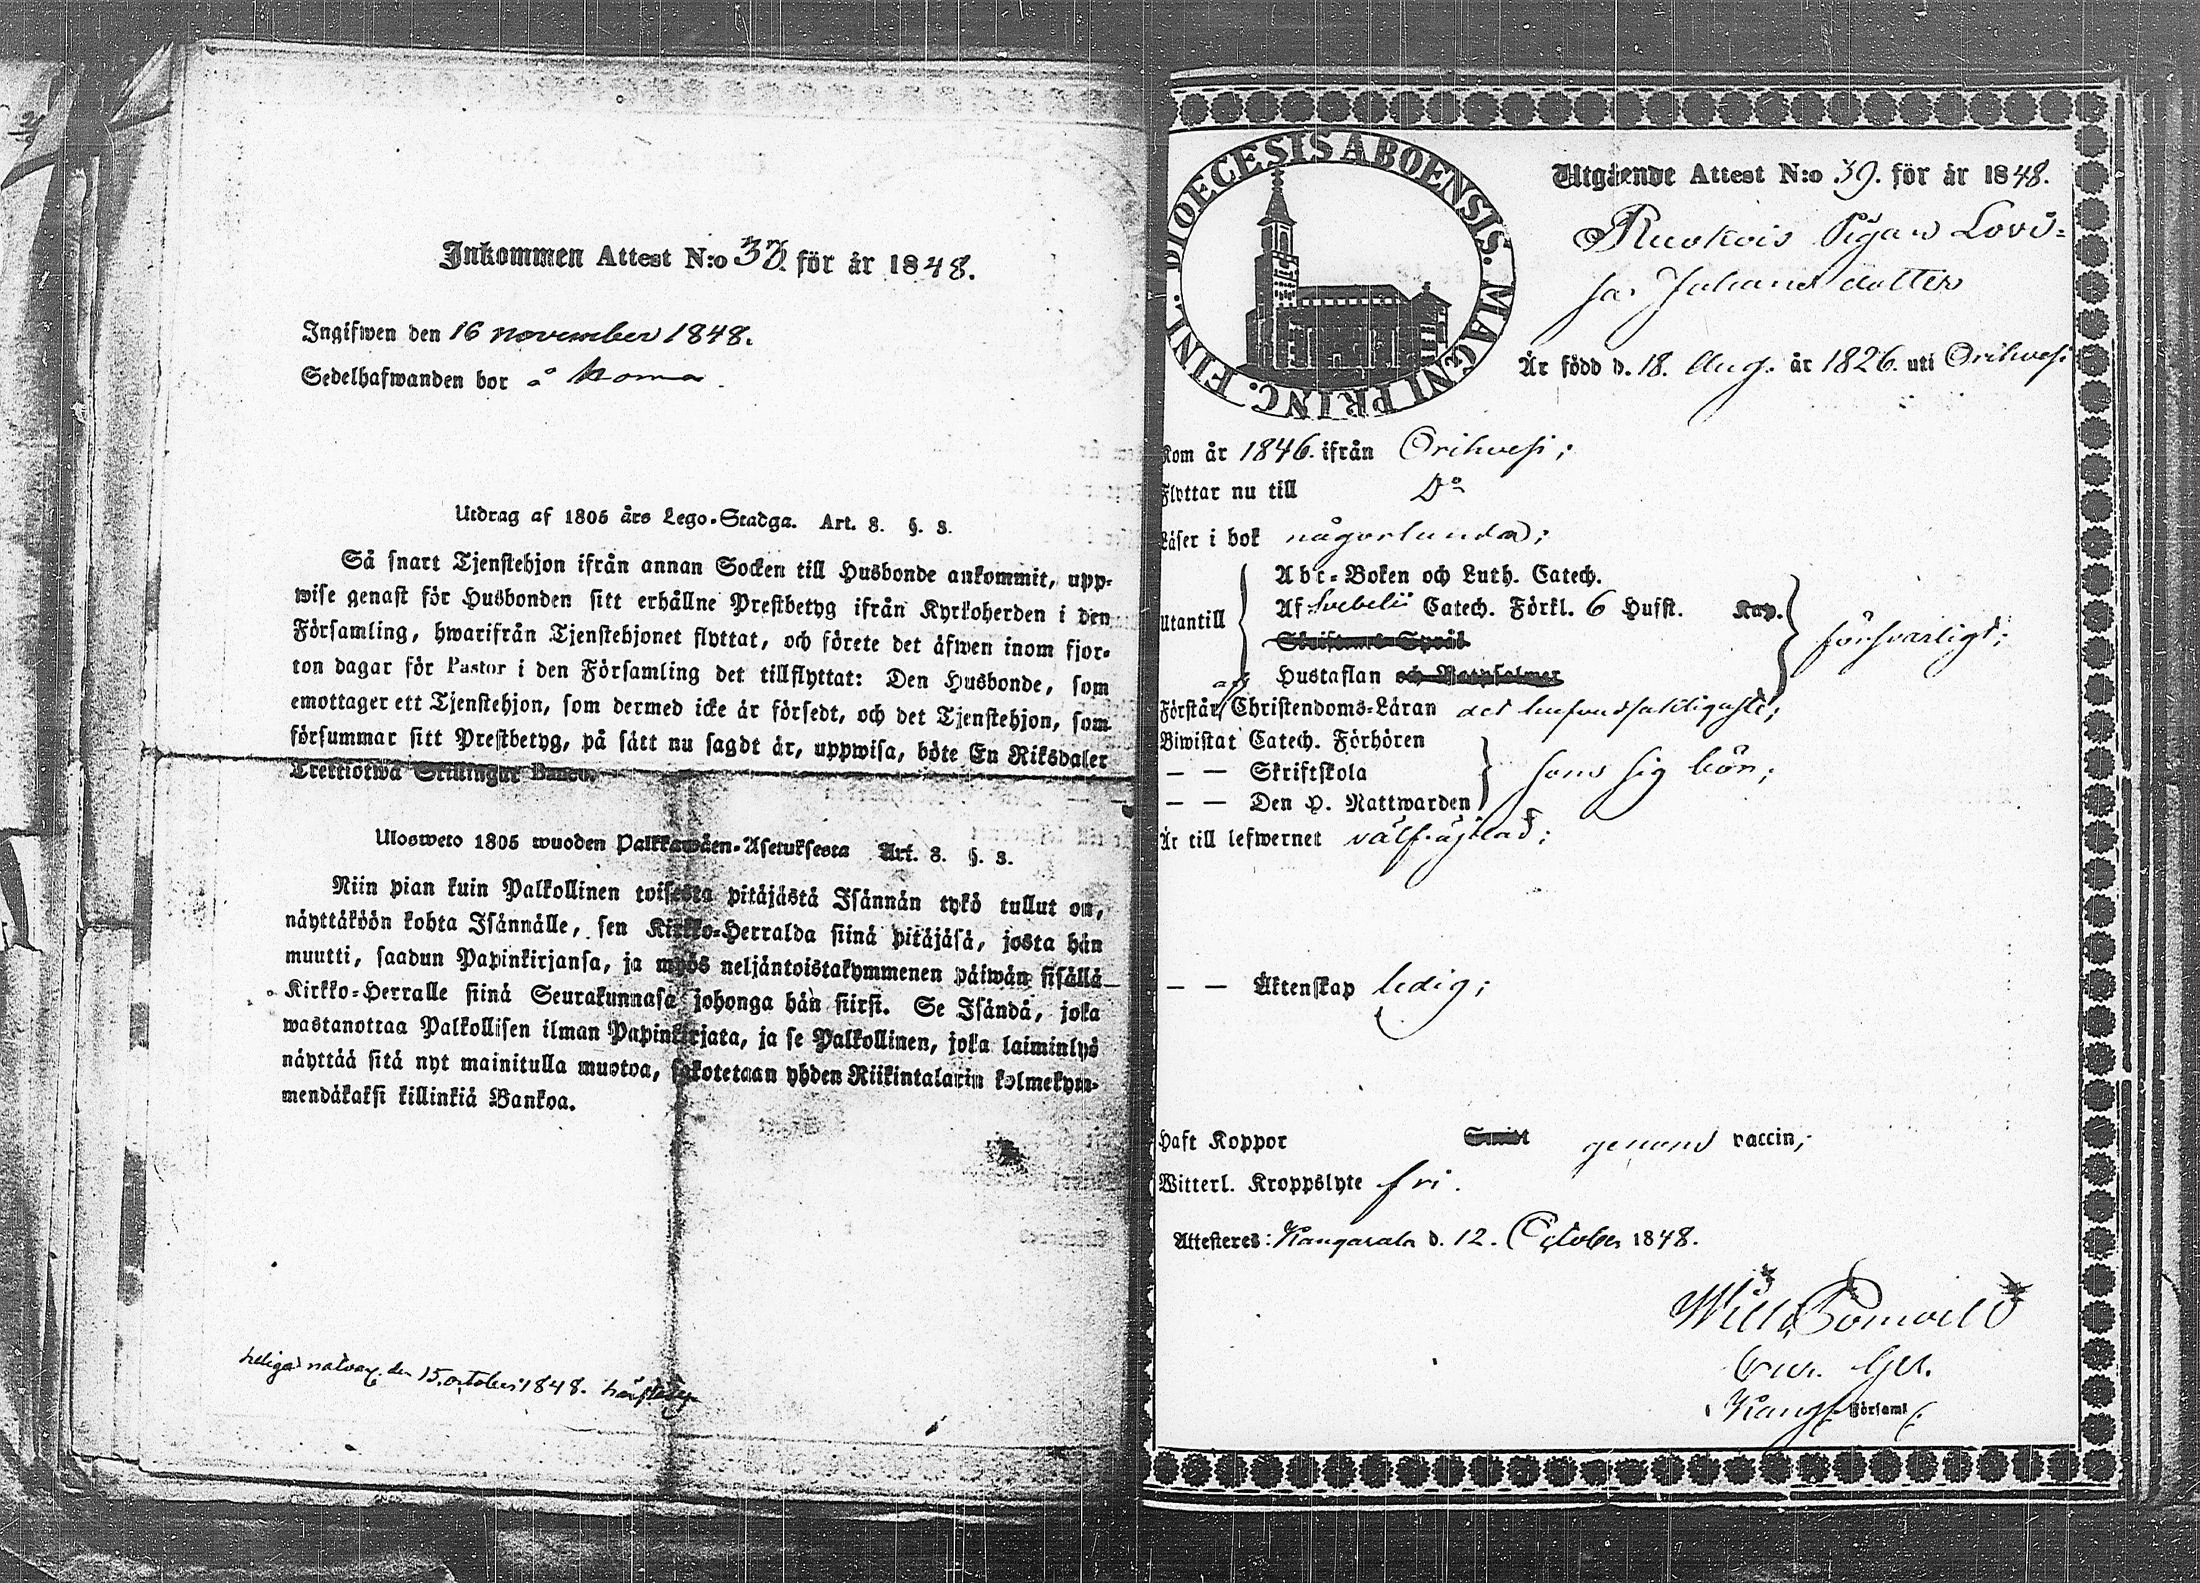 Inkommen Attest N:o 37. för år 1848.
Ingifwen den 16 november 1848.
Sedelhafwanden bor å Koma.
Utdrag af 1805 års Lego-Stadga. Art. 8. §. 3.
Så snart Tjenstehjon ifrån annan Socken till Husbonde ankommit, upp-
wise genast för Husbonden sitt erhållne Prestbetyg ifrån Kyrkoherden i den
Församling, hwarifrån Tjenstehjonet flyttat, och förete det äfwen inom fjor-
ton dagar för Pastor i den Församling det tillflyttat: Den Husbonde, som
emottager ett Tjenstehjon, som dermed icke är försedt, och det Tjenstehjon, som
försummar sitt Prestbetyg, på sätt nu sagdt är, uppwisa, böte En Riksdaler
Trettiotwå Skillingar Banco.
Ulosweto 1805 wuoden Palkkawäen-Asetuksesta Art. 8. §. 3.
Niin pian kuin Palkollinen toisesta pitäjästä Isännän tykö tullut on,
näyttäköön kohta Isännälle, sen Kirkko-Herralda siinä pitäjäsä, josta hän
muutti, saadun Papinkirjansa, ja myös neljäntoistakymmenen päiwän sisällä
Kirkko-Herralle siinä Seurakunnasa johonga hän siirsi. Se Isändä, joka
wastanottaa Palkollisen ilman Papinkirjata, ja se Palkollinen, joka laiminlyö
näyttää sitä nyt mainitulla muotoa, sakotetaan yhden Riikintalarin kolmekym-
mendäkaksi killinkiä Bankoa.
den 15 october 1848.
DIOECESIS ABOENSIS. MAGNI PRINC. FINL.
Utgående Attest N:o 39. för år 1848.
Pigan Lovi-
sa Johansdotter
Är född d. 18. Aug. år 1826. uti Orihvesi
Kom år 1846. ifrån Orihvesi;
Flyttar nu till Do
Läser i bok någorlunda;
Utantill
Abc-Boken och Luth. Catech.
Af Svebelii Catech. Förkl. 6 Hufst. Kap.
Skriftens Språk
Hustaflan och Botpsalmer
försvarligt;
Förstår Christendoms-Läran det hufvudsakligaste;
Biwistat Catech. Förhören
— — Skriftskola
— — Den H. Nattwarden
som sig bör;
Är till lefwernet välfrejdad;
— — Äktenskap ledig;
Haft Koppor Smitt genom vaccin;
Witterl. Kroppslyte fri.
Attesteres: Kangasala d. 12. October 1848.
Kang. Församl.